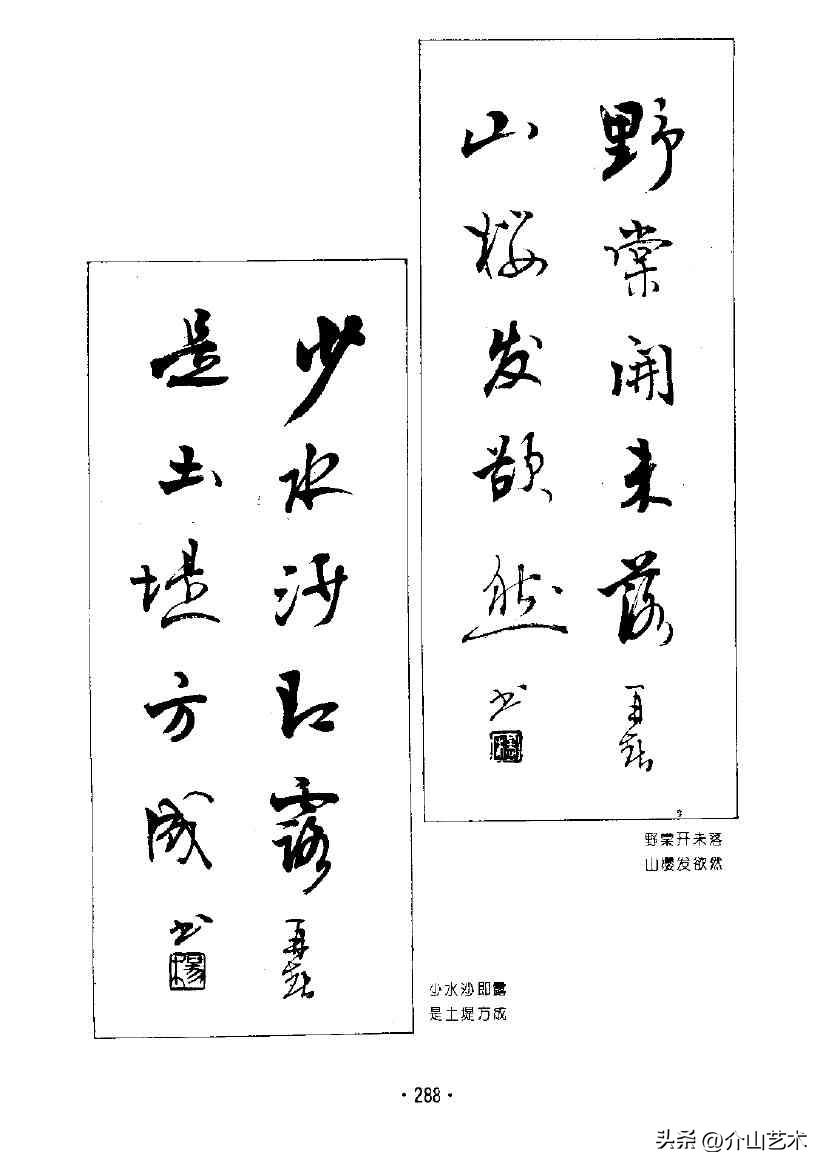 野棠开未落
山樱发欲然
再春
书
野棠开未落
山樱发欲然
少水沙即露
是土堤方成
再春
书
楊
少水沙即露
是土堤方成
·288·
头条@介山艺术